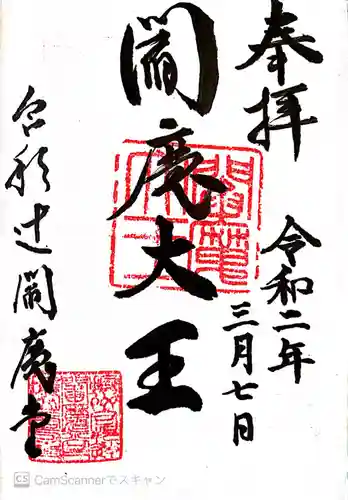 奉拝
令和二年
三月七日
閻魔大王
合邦辻閻魔堂
CS CamScannerでスキャン